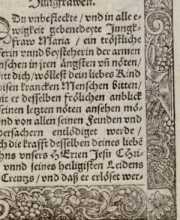 Jungfrawen.
DU unbefleckte / vnd in alle e-
wigkeit gebenedeyte Jungk-
fraw Maria / ein tröstliche
ferin vnnd Beysteherin der armen
nschen in jren ängsten vñ nöten /
dich / wöllest dein liebes Kind
osen krancken Menschen bitten /
er desselben frölichen anblick
seinen letzten nöten ansehen mö-
nd von allen seinen Feinden vnd
dersachern entlödiget werde /
ch die krafft desselben deines liebē
hns vnsers HErren Jesu Chri-
vnnd seines heiligisten Leidens
Creutzs / vnd daß er erlöset wer-